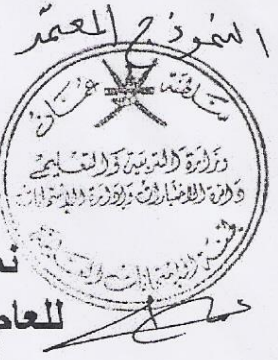 النموذج المعتمد
سلطنة عمان
وزارة التربية والتعليم
دائرة الاختبارات وإدارة الامتحانات
للعا